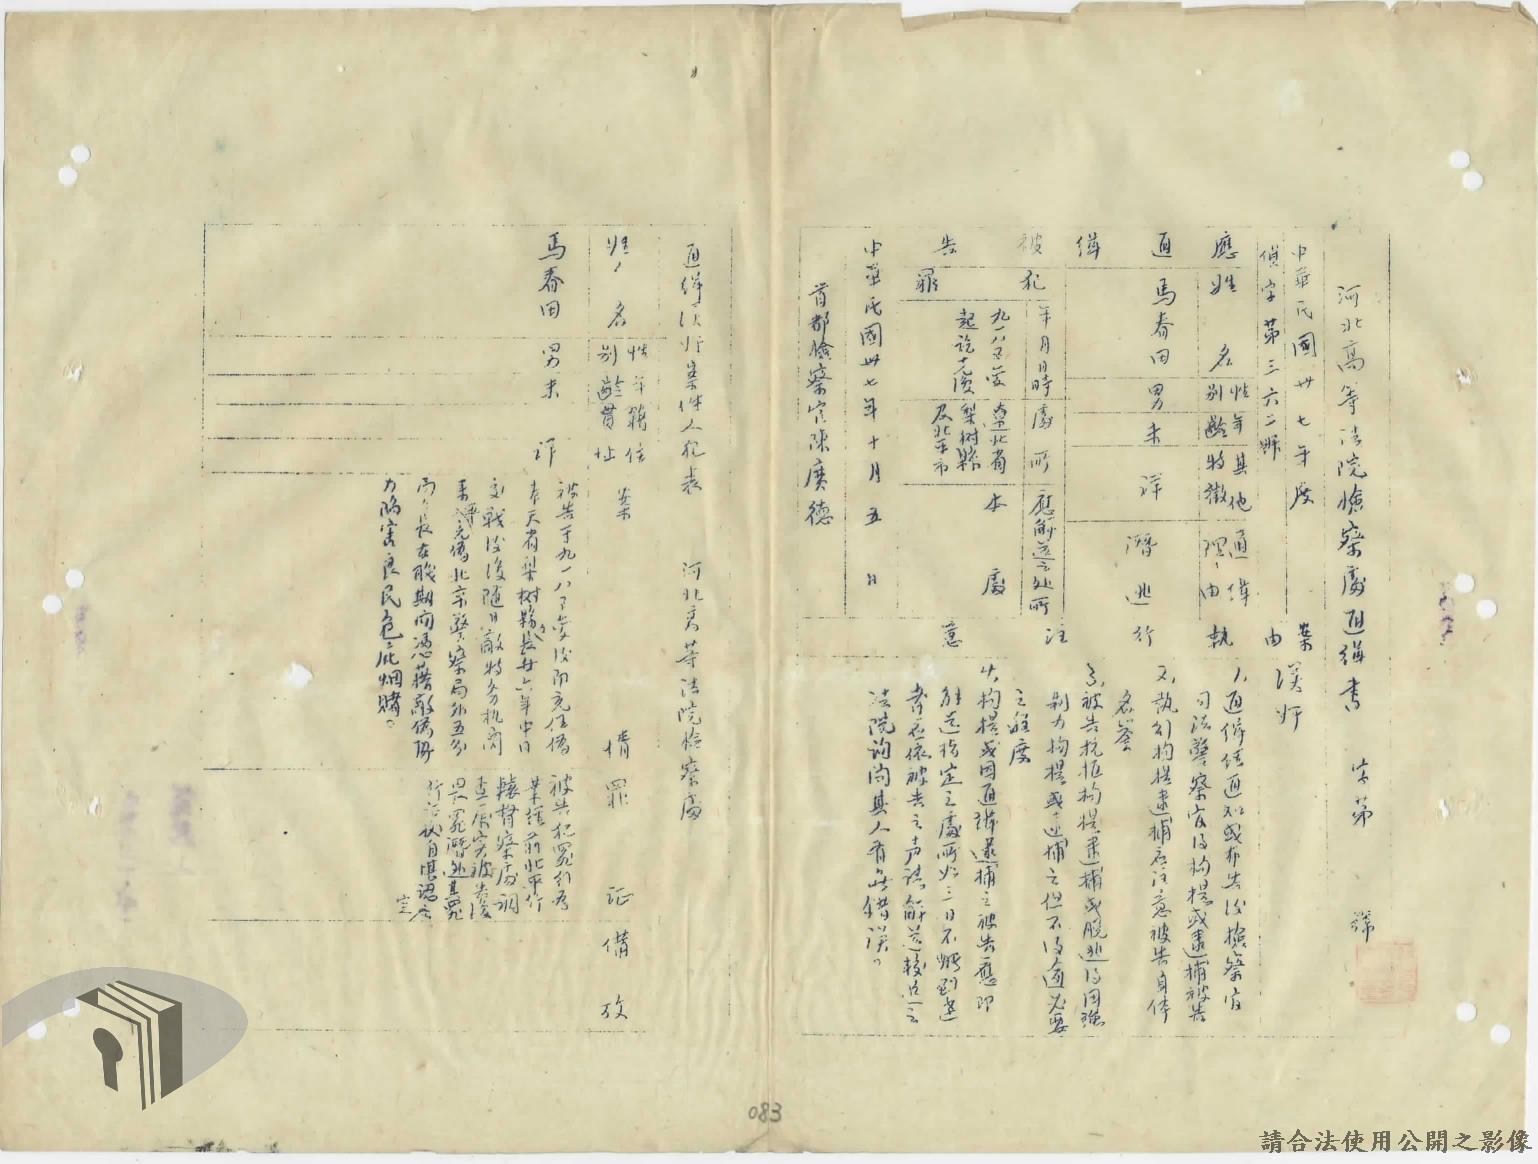 河北高等法院檢察處通緝書 字第 號
中華民國卅七年度
偵字第三六二號
案由 漢奸
應通緝被告
姓名 性別 年齡 其他特徵 通緝理由
馬春田 男 未詳 潛逃
犯罪
年月日時 處所 應解送之处所
九一八事变起訖光復
遼北省梨树縣及北平市
本處
執行注意
1、通緝経通知或布告後檢察官
司法警察官得拘提或逮捕被告
2、執行拘提逮捕应注意被告身体
名誉
3、被告抗拒拘提逮捕或脱逃得用強
制力拘提或逮捕之但不得逾必要
之程度
4、拘提或因通緝逮捕之被告應即
解送指定之處所如三日不能到達
者应依被告之声請解送較近之
法院詢問其人有無錯误。
中華民國卅七年十月五日
首都檢察官陳廣德
通緝漢奸案件人犯表 河北高等法院檢察處
姓名 性別 年齡 籍貫 住址 案情 罪証 備攷
馬春田 男 未詳
被告于九一八事变後即充任偽
奉天省梨树縣長廿六年中日
变戰後復隨日敵特务机関
来平充偽北京警察局外五分
局局長在職期間憑藉敵偽勢
力陷害良民包庇烟賭。
被告犯罪行為
業経前北平行
轅督察處調
查属实被告後
畏罪潛逃其罪
行证狀自堪認
定
083
請合法使用公開之影像